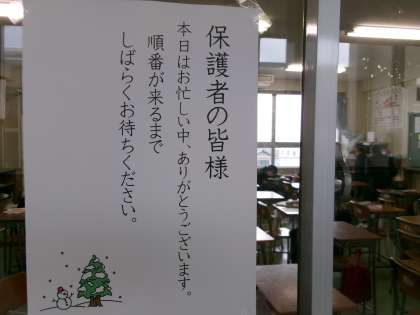 保護者の皆様
本日はお忙しい中、ありがとうございます。
順番が来るまで
しばらくお待ちください。